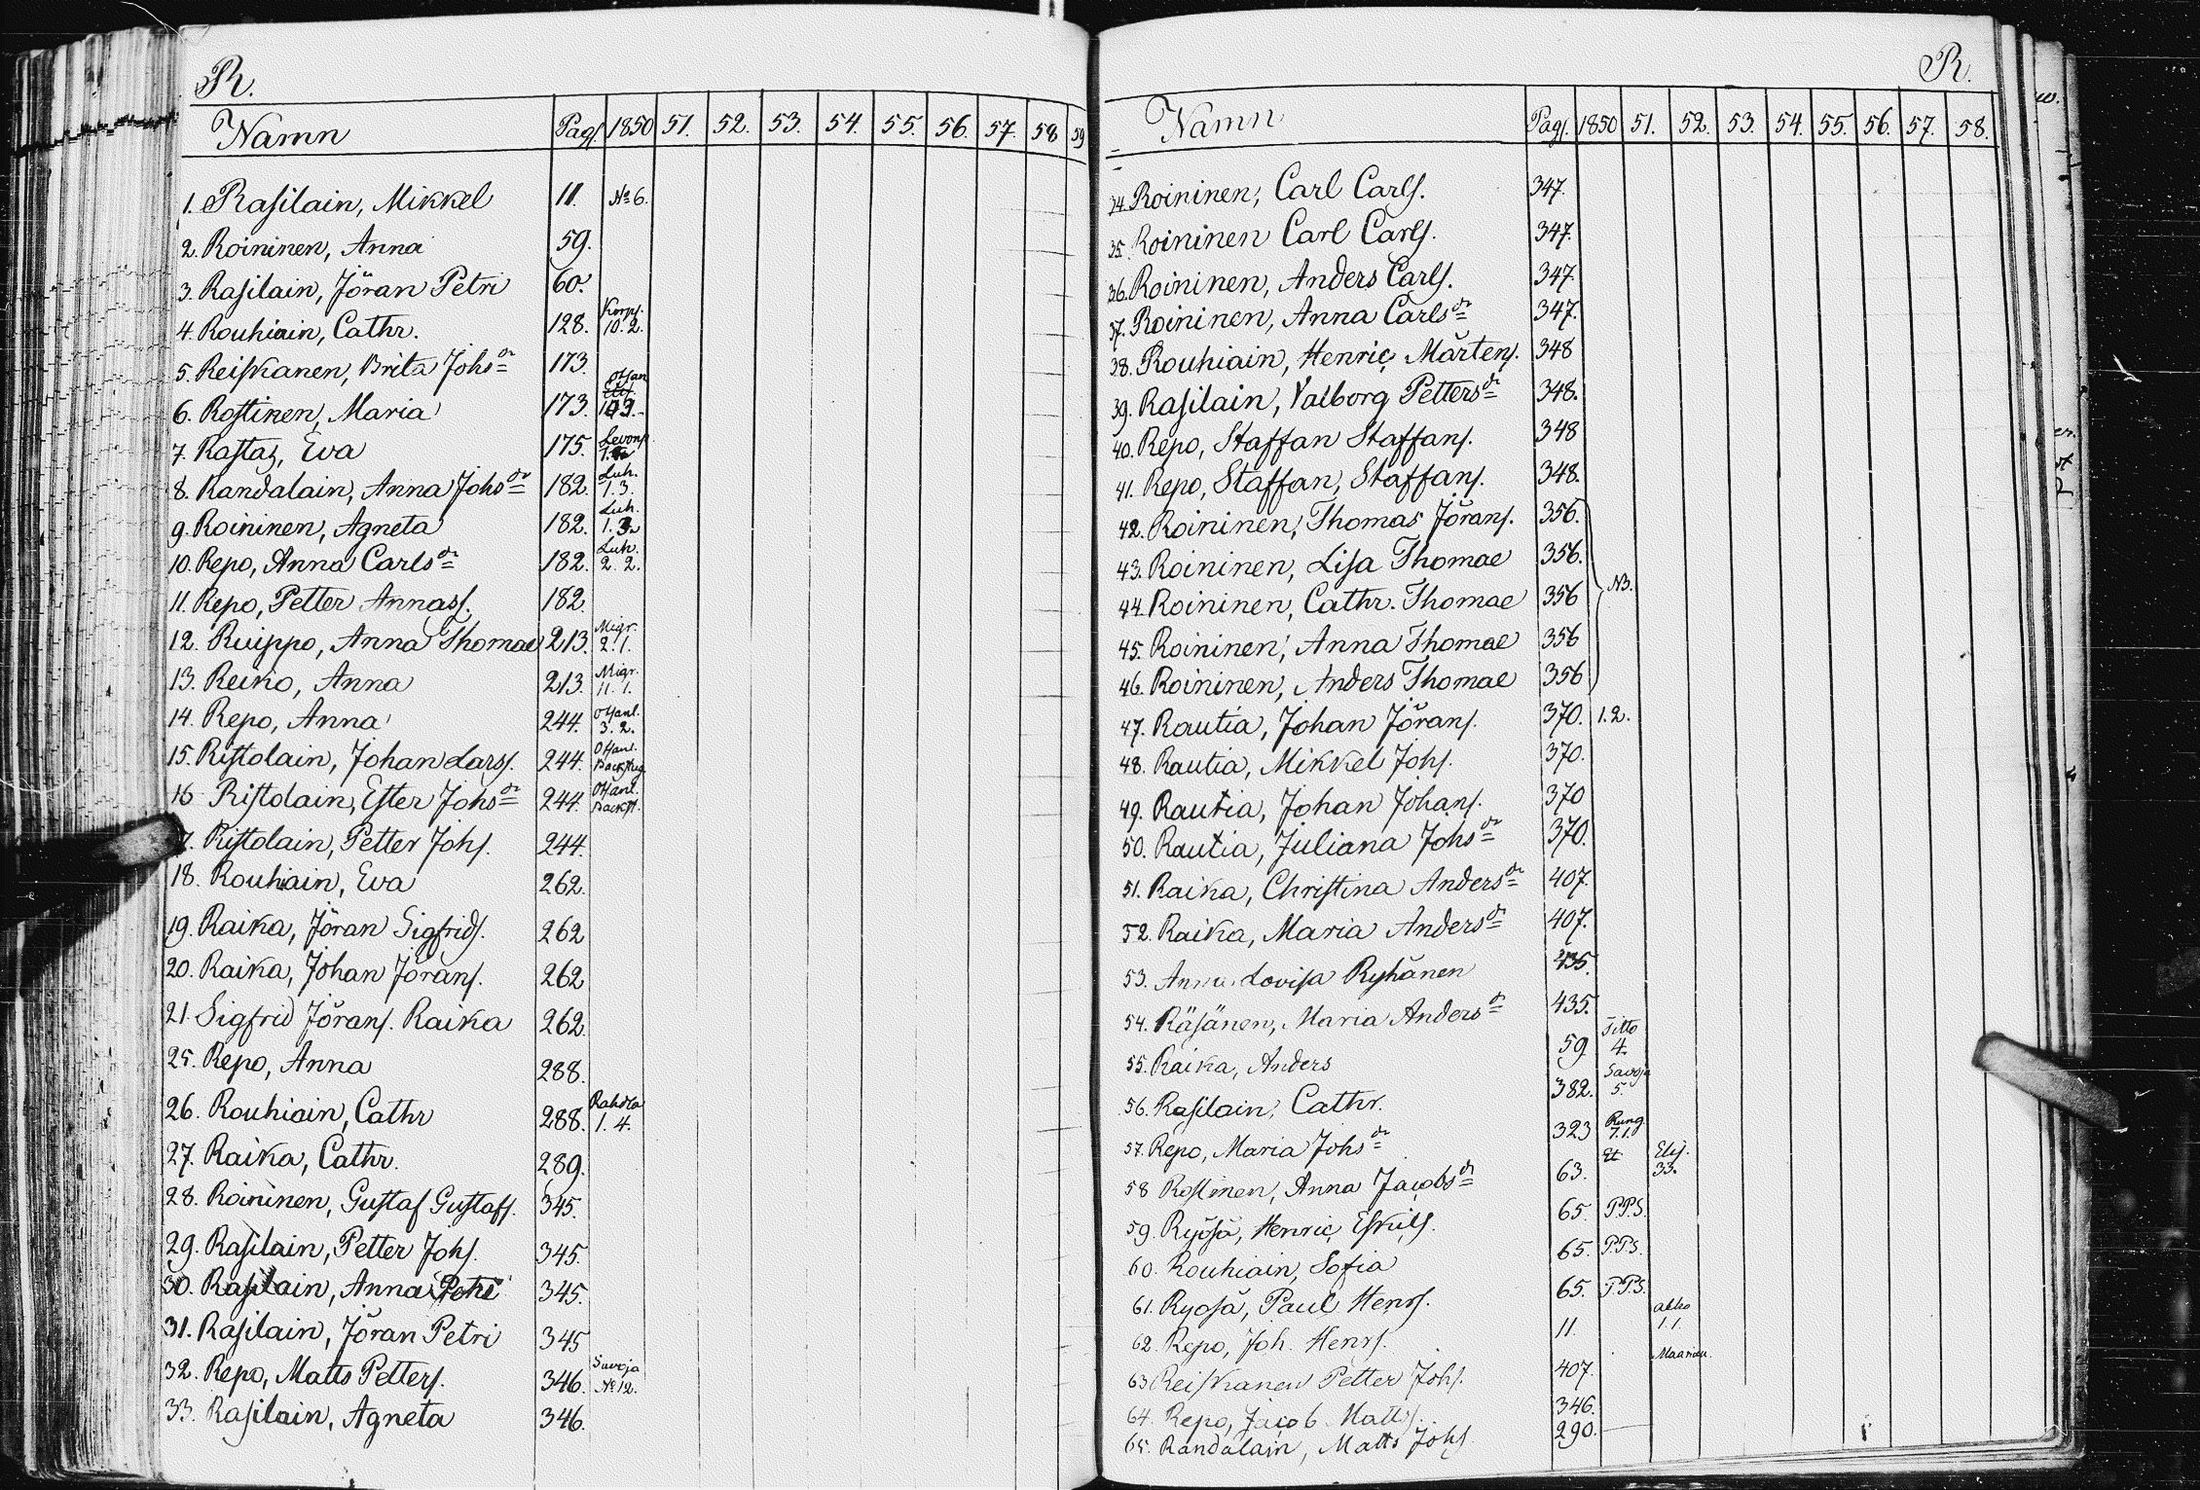 R.
Namn Pag. 1850 51. 52. 53. 54. 55. 56. 57. 58 59
1. Rasilain, Mikkel 11. No 6.
2. Roininen, Anna 59.
3. Rasilain, Jöran Petri 60.
4. Rouhiain, Cathr. 128. Korps. 10. 2.
5. Reiskanen, Brita Johsdr 173.
6. Rostinen, Maria 173.
7. Rastas, Eva 175.
8. Randalain, Anna Johsdr 182. Luh. 1. 3.
9. Roininen, Agneta 182. Luh.
10. Repo, Anna Carlsdr 182. Luh. 2. 2.
11. Repo, Petter Annass. 182.
12. Ruippo, Anna Thomae 213. Migr. 2. 1.
13. Reiko, Anna 213. Migr. 11. 1.
14. Repo, Anna 244. 3. 2.
15. Ristolain, Johan Larss. 244.
16 Ristolain, Ester Johsdr 244.
7. Ristolain, Petter Johs. 244.
18. Rouhiain, Eva 262.
19. Raika, Jöran Sigfrids. 262
20. Raika, Johan Jörans. 262
21. Sigfrid Jörans. Raika 262.
25. Repo, Anna 288.
26. Rouhiain, Cathr 288. 1. 4.
27. Raika, Cathr. 289.
28. Roininen, Gustaf Gustafs. 345.
29. Rasilain, Petter Johs. 345.
30. Rasilain, Anna Petri 345.
31. Rasilain, Jöran Petri 345
32. Repo, Matts Petters. 346. Savoja No 12.
33. Rasilain, Agneta 346.
R.
Namn Pag. 1850 51. 52. 53. 54. 55. 56. 57. 58.
34. Roininen, Carl Carls. 347.
35. Roininen Carl Carls. 347.
36. Roininen, Anders Carls. 347.
37. Roininen, Anna Carlsdr 347.
38. Rouhiain, Henric Mårtens. 348
39. Rasilain, Valborg Pettersdr 348.
40. Repo, Staffan Staffans. 348
41. Repo, Staffan, Staffans. 348.
42. Roininen, Thomas Jörans. 356.
43. Roininen, Lisa Thomae 356.
44. Roininen, Cathr. Thomae 356 NB.
45. Roininen, Anna Thomae 356
46. Roininen, Anders Thomae 356
47. Rautia, Johan Jörans. 370. 1. 2.
48. Rautia, Mikkel Johs. 370.
49. Rautia, Johan Johans. 370
50. Rautia, Juliana Johsdr 370.
51. Raika, Christina Andersdr 407.
52. Raika, Maria Andersdr 407.
53. Anna Lovisa Ryhänen 435.
54. Räsänen, Maria Andersdr 435.
55. Raika, Anders 59 Titto 4.
56. Rasilain, Cathr. 382. Savoja 5.
57. Repo, Maria Johsdr 323 Rung. 7.1.
58 Rostinen, Anna Jacobsdr 63. Elis. 33.
59. Ryösä, Henric Eskils. 65. P.P.S.
60. Rouhiain, Sofia 65. P.P.S.
61. Ryösä, Paul Henrs. 65. P.P.S.
62. Repo, Joh. Henrs. 11. 1.1.
63 Reiskanen Petter Johs. 407.
64. Repo, Jacob Matts. 346.
65. Randalain, Matts Johs. 290.